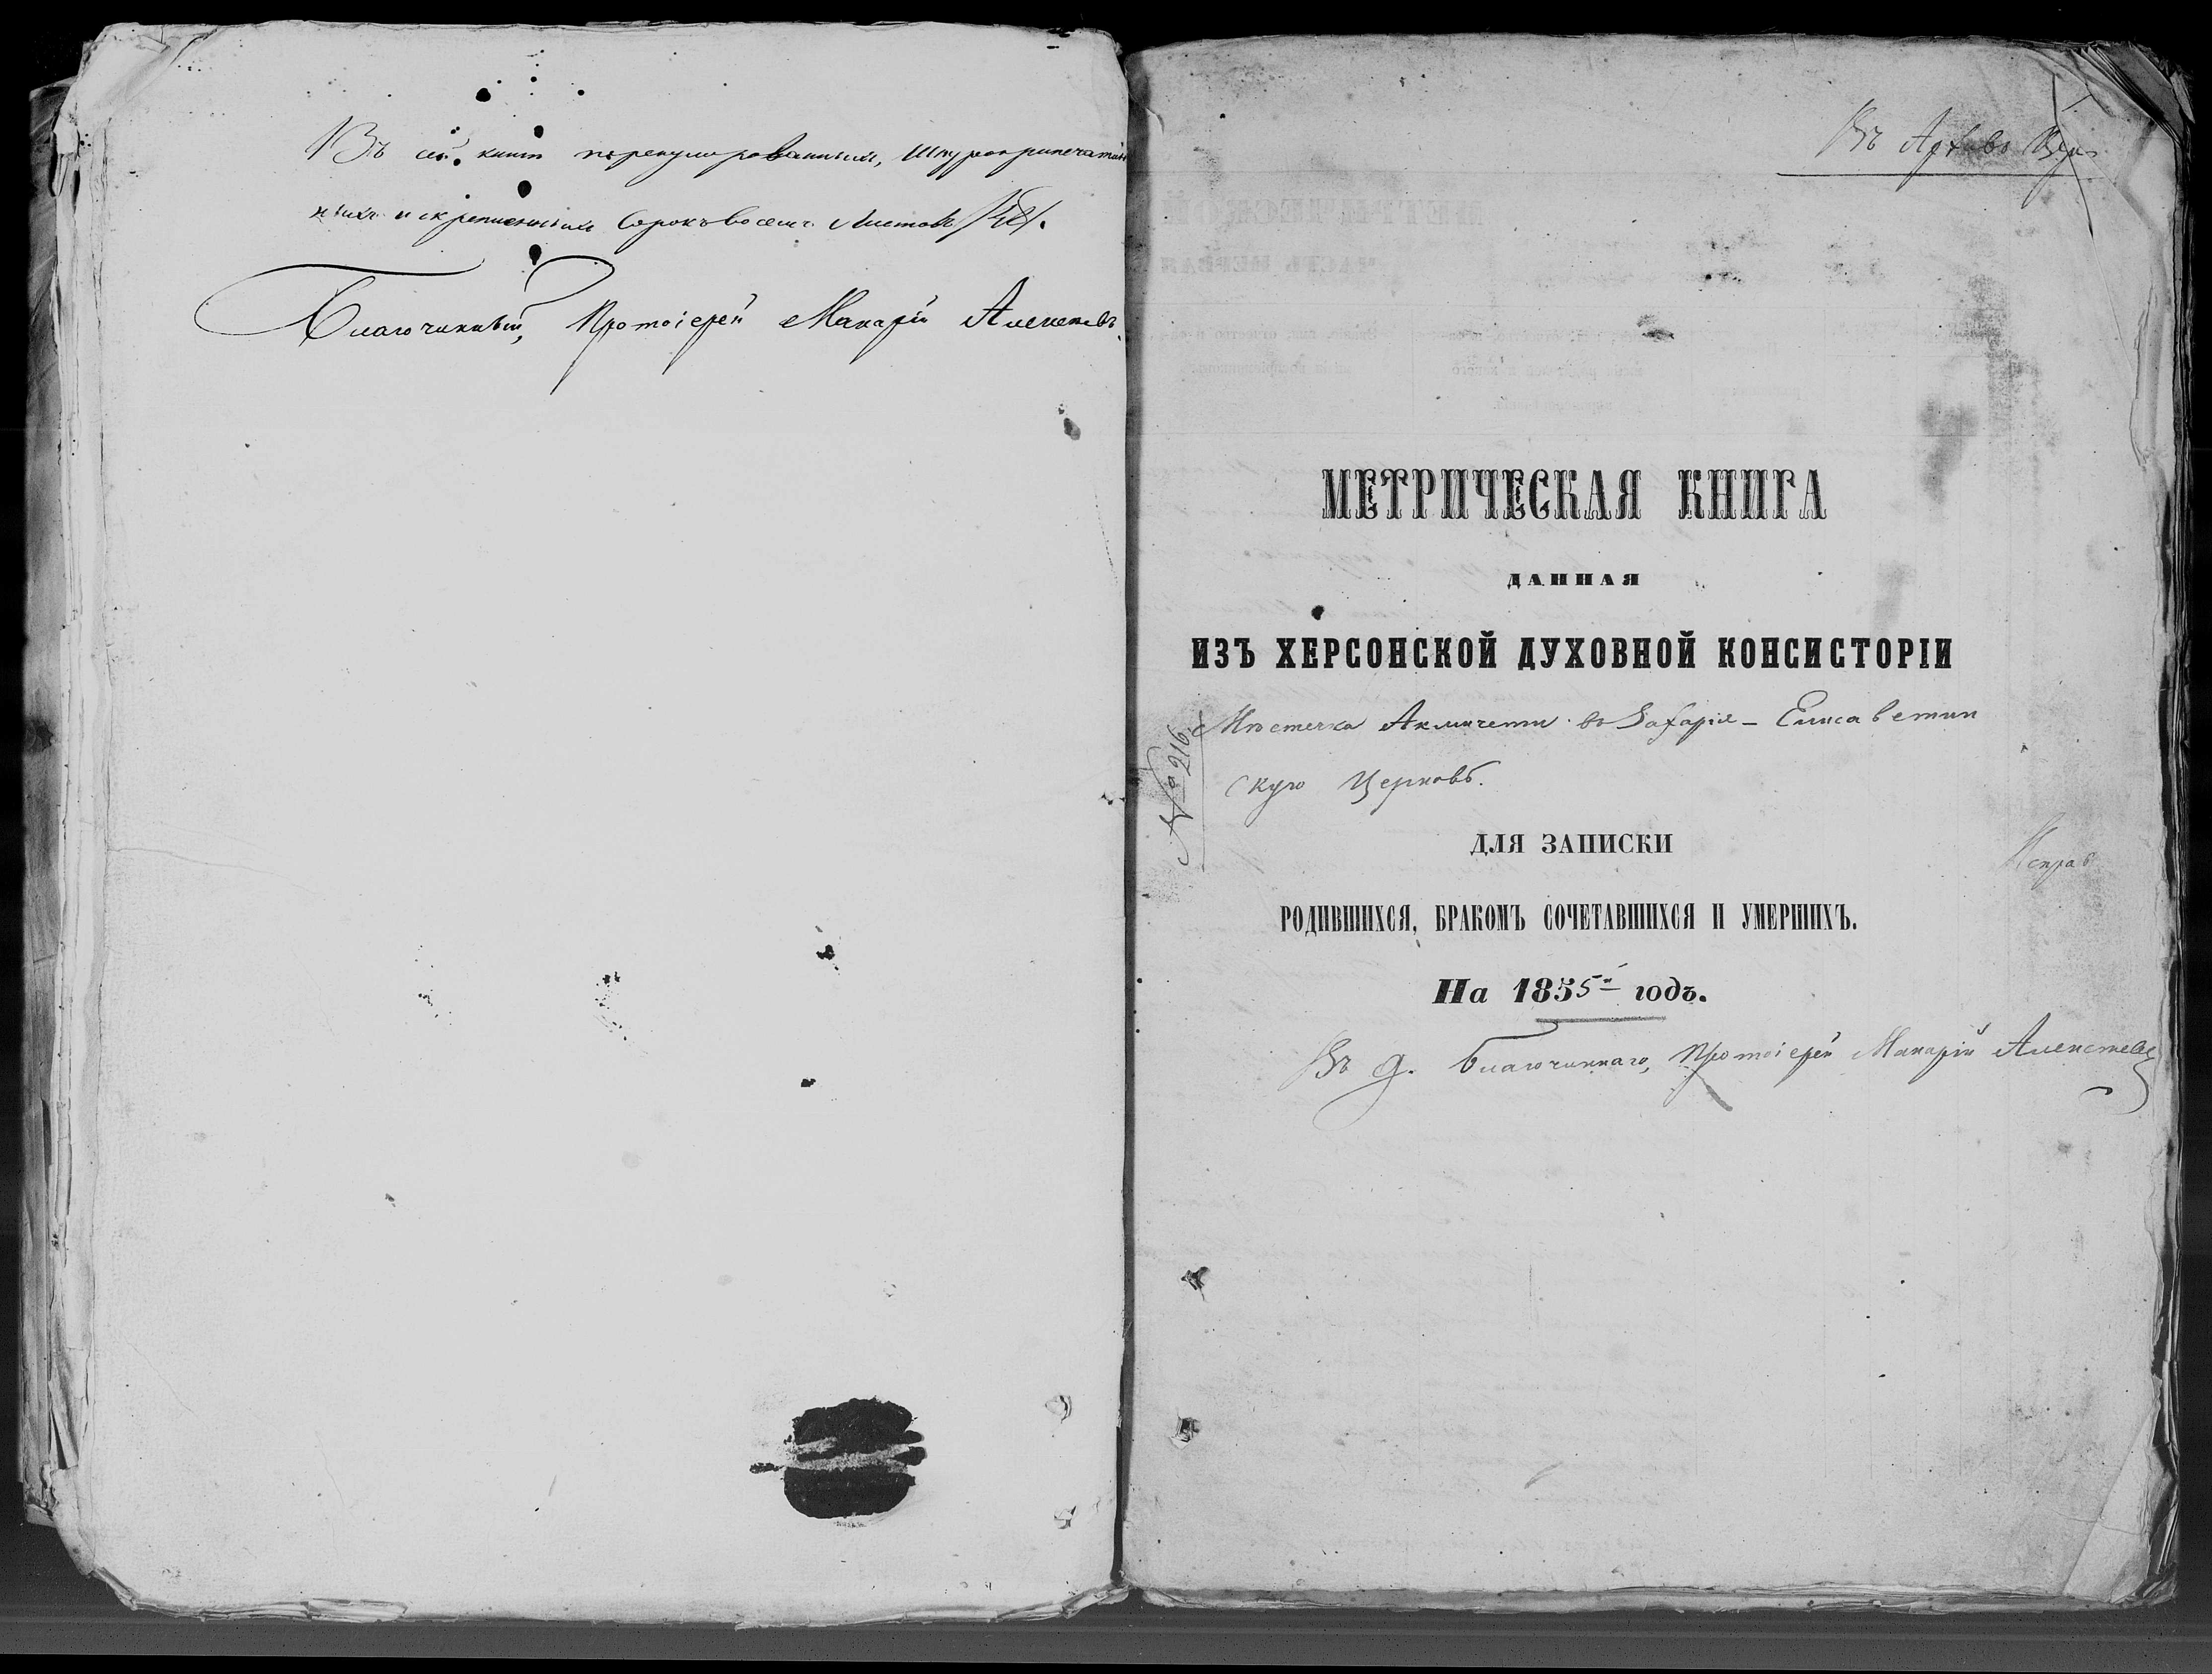 Въ сей книгѣ перенумерованныхъ, шнуроприпечатан
ныхъ и скрепленныхъ сорокъ восемь листовъ /48/.
Благочинный, Протоіерей Макарій Алексѣевъ
Въ Архивъ
МЕТРИЧЕСКАЯ КНИГА
ДАННАЯ
ИЗЪ ХЕРСОНСКОЙ ДУХОВНОЙ КОНСИСТОРІИ
№ 216.
Мѣстечка Акмичети въ Захаріе-Елисаветин
скую Церковь.
ДЛЯ ЗАПИСКИ
Исправ
РОДИВШИХСЯ, БРАКОМЪ СОЧЕТАВШИХСЯ И УМЕРШИХЪ.
На 1855й годъ.
Въ д. Благочиннаго, Протоіерей Макарій Алексѣевъ